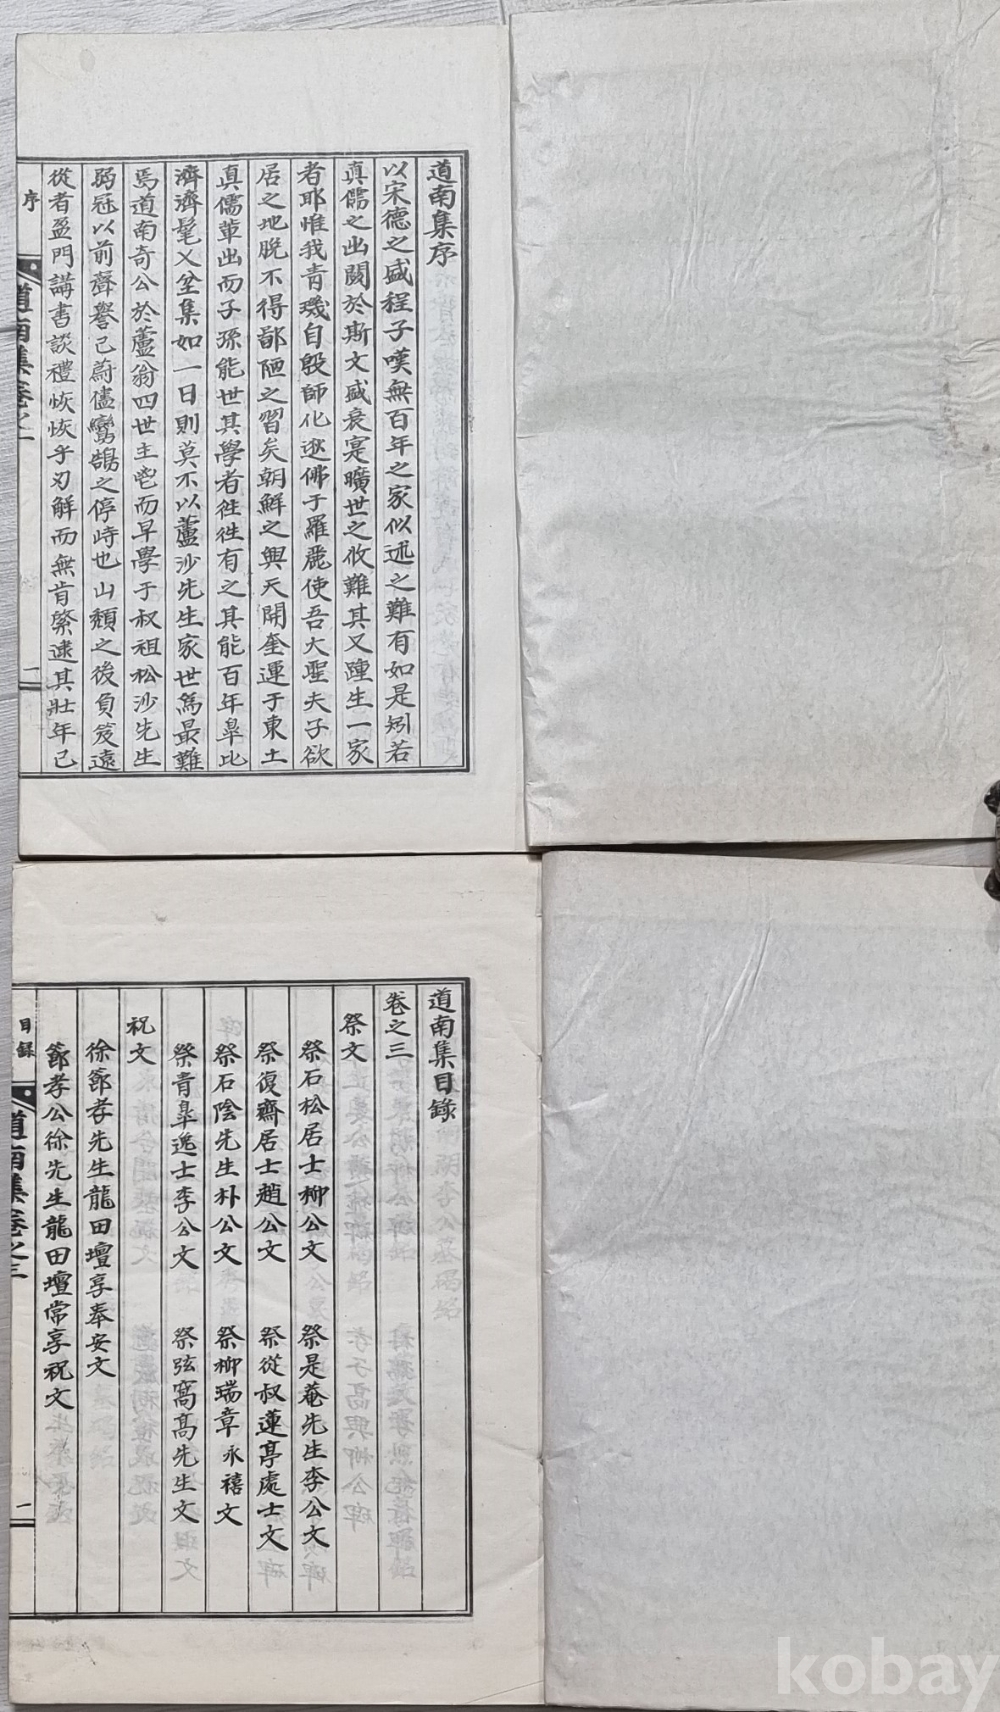 道南集序
以宋德之盛程子嘆無百年之家似述之難有如是矧若
眞儒之出關於斯文盛衰寔曠世之攸難其又踵生一家
者耶惟我靑璣自殷師化迯佛于羅麗使吾大聖夫子欲
居之地脫不得鄙陋之習矣朝鮮之興天開奎運于東土
眞儒輩出而子孫能世其學者徃徃有之其能百年臯比
濟濟髦乂坌集如一日則莫不以蘆沙先生家世爲最難
焉道南奇公於蘆翁四世主鬯而早學于叔祖松沙先生
弱冠以前聲譽已蔚儘鸞鵠之停峙也山頹之後負笈遠
從者盈門講書談禮恢恢乎刃解而無肯綮逮其壯年已
序
道南集卷之一
一
道南集目錄
卷之三
祭文
祭石松居士柳公文
祭是菴先生李公文
祭復齋居士趙公文
祭從叔蓮亭處士文
祭石陰先生朴公文
祭柳瑞章永禧文
祭靑臯逸士李公文
祭弦窩高先生文
祝文
徐節孝先生龍田壇享奉安文
節孝公徐先生龍田壇常享祝文
目錄
道南集卷之三
一
kobay